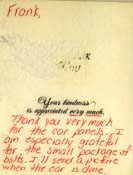 Frank,
Your kindness
is appreciated very much.
Thank you very much
for the car panels. I
am especially grateful
for the small package of
bolts. I'll send a picture
when the car is done.